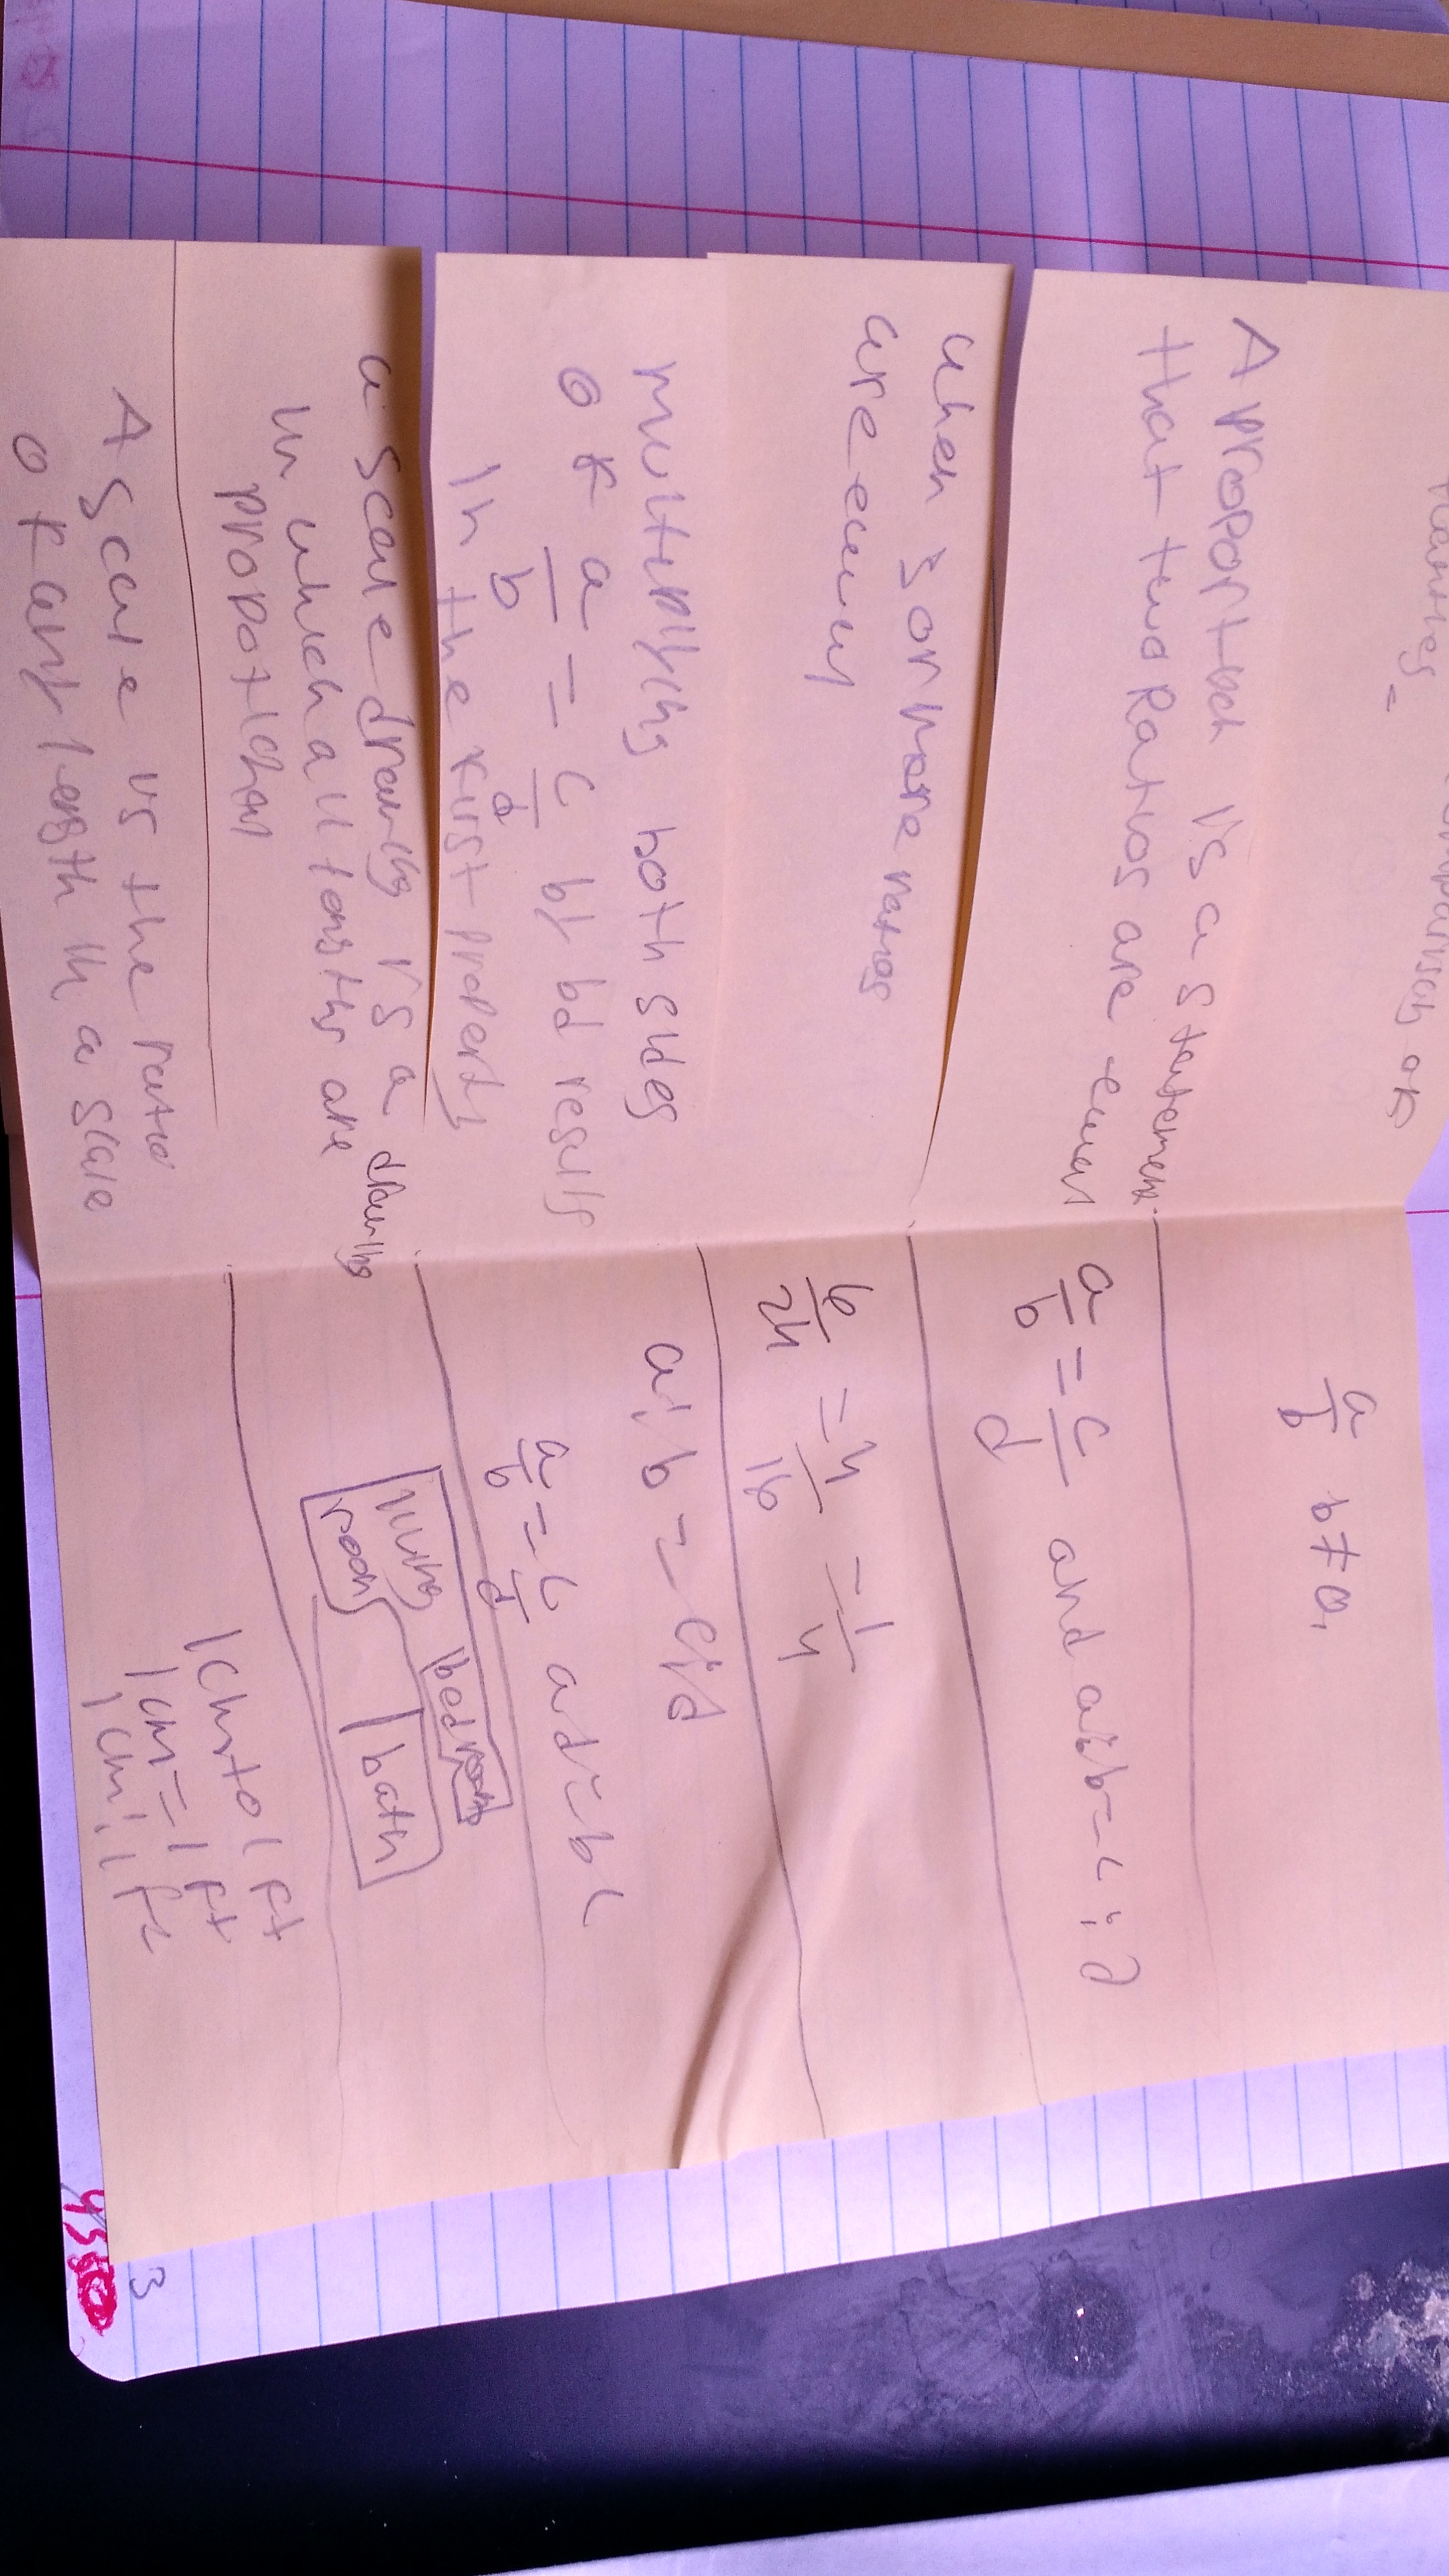 a/b b≠0.
A proportion is a statement
that two Ratios are equal
a/b = c/d and a:b = c:d
when 3 or more ratios
are equal
6/24 = 4/16 = 1/4
multiplying both sides
of a/b = c/d by bd results
in the first property
a:b = c:d
a/b = c/d ad = bc
a scale drawing is a drawing
in which all lengths are
propotional
living
room
bedroom
bath
A scale is the ratio
of any length in a scale
1cm to 1 ft
1cm = 1 ft
1cm : 1 ft
3